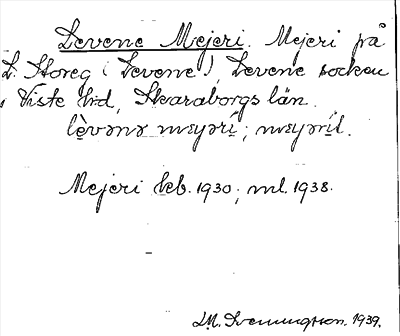 Levene Mejeri. Mejeri på
L. Storeg (Levene), Levene socken
, Viste hd, Skaraborgs län.
lèvənə mɛyərí; mɛyərít.
Mejeri beb. 1930; ml. 1938.
I.M. Svenningson. 1939.